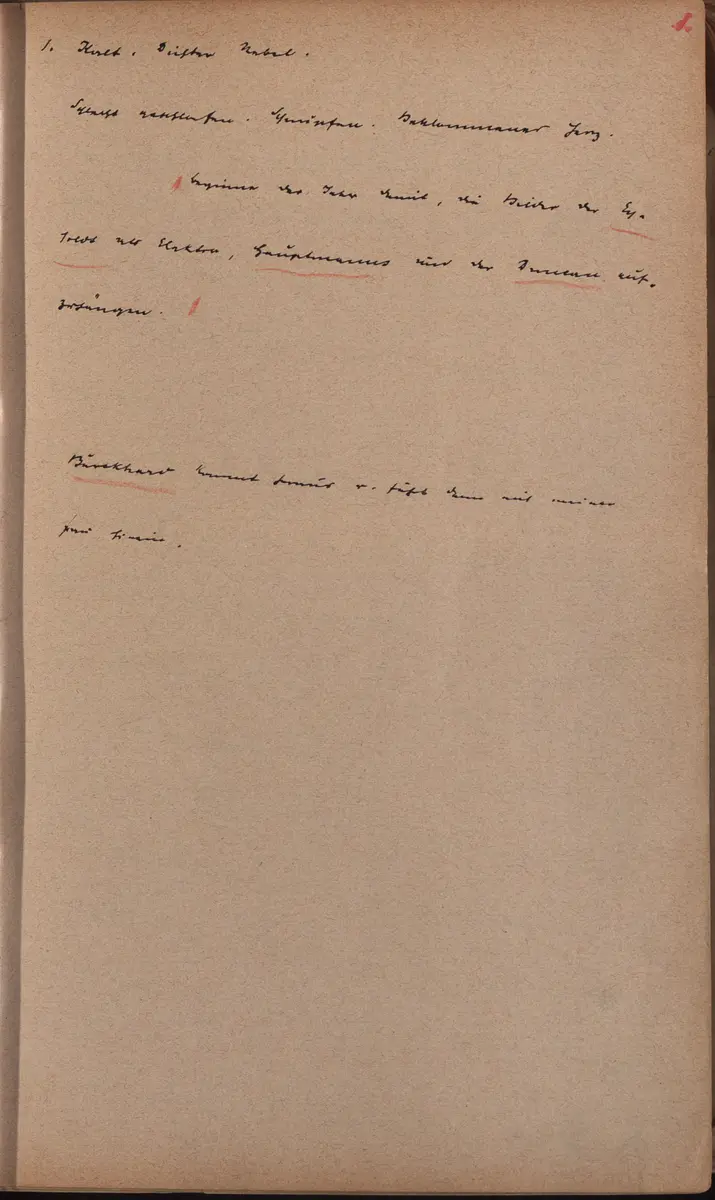 1.
1. Kalt. Dichter Nebel.
Schlecht geschlafen. Schnupfen. Beklommenes Herz.
Beginne das Jahr damit, die Bilder der Ey-
soldt als Elektra, Hauptmanns und der Duncan auf-
zuhängen.
Burckhard kommt heraus u. fährt dann mit meiner
Frau hinein.